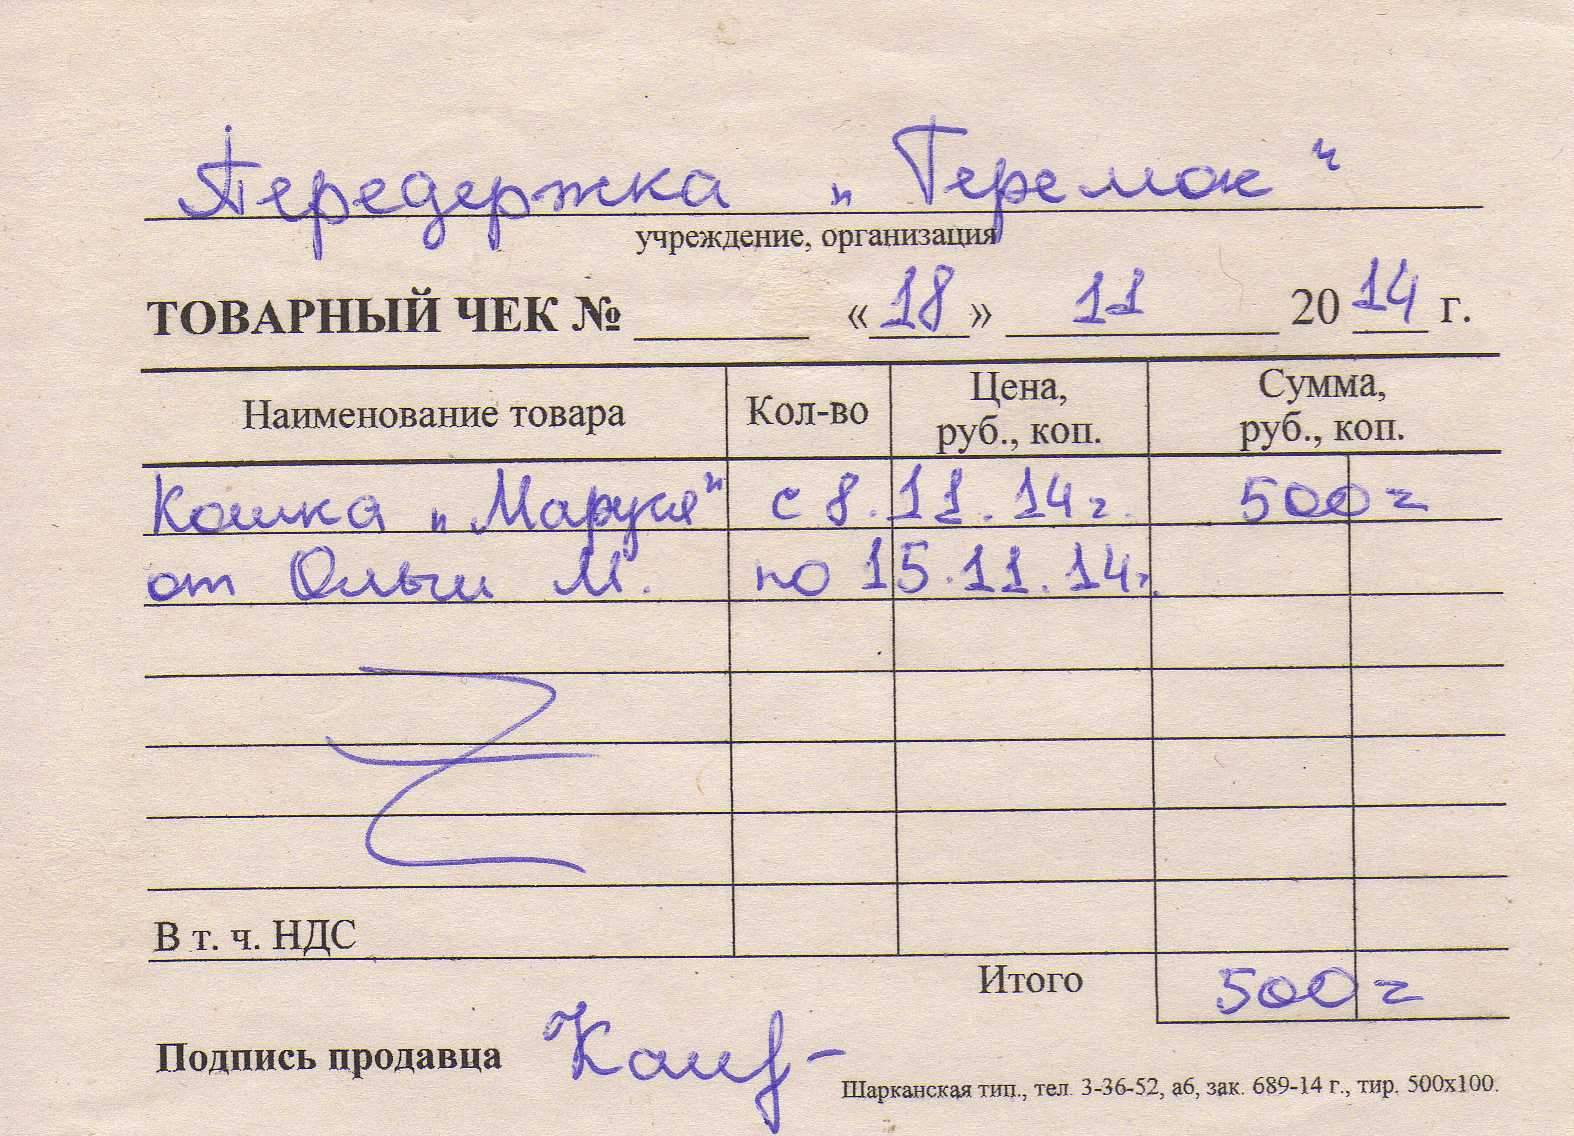 Передержка „Теремок"
учреждение, организация
ТОВАРНЫЙ ЧЕК № «18» 11 2014 г.
Наименование товара Кол-во Цена, руб., коп. Сумма, руб., коп.
Кошка „Маруся" с 8.11.14г. 500=
от Ольги М. по 15.11.14г.
В т. ч. НДС
Итого 500=
Подпись продавца
Шарканская тип., тел. 3-36-52, а6, зак. 689-14 г., тир. 500х100.